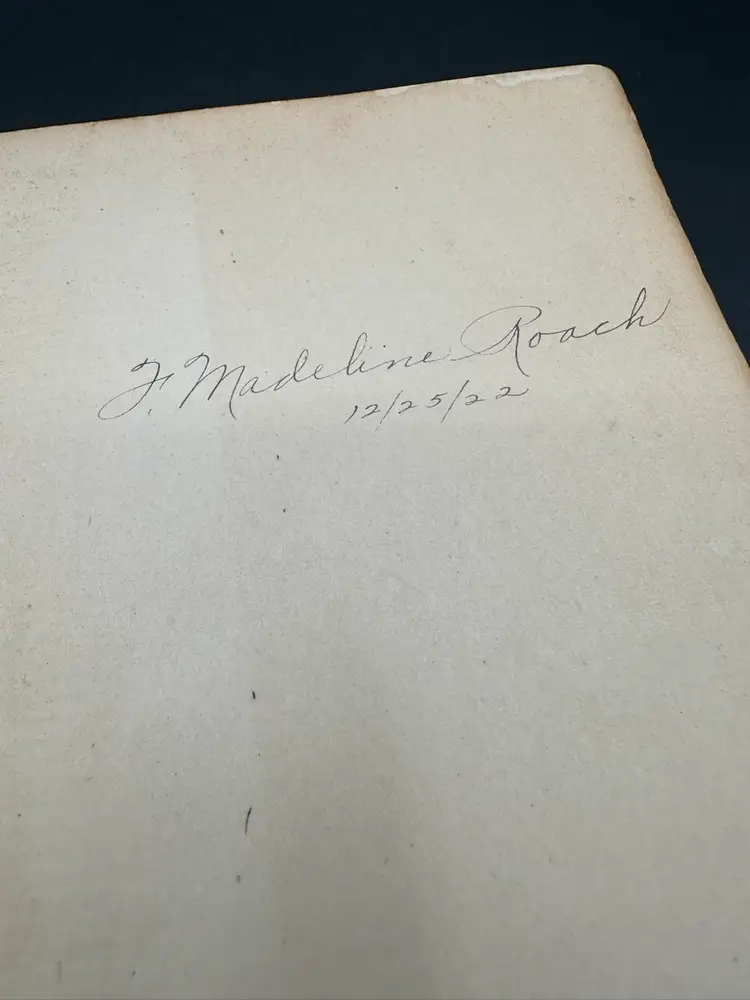 F. Madeline Roach
12/25/22